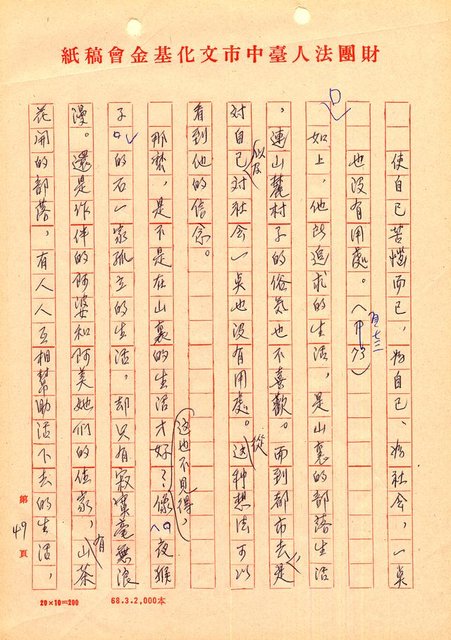 財團法人臺中市文化基金會稿紙
使自己苦惱而已,於自己、於社會,一臭
也沒有用處。(P73)頁七三
如上,他所追求的生活,是山裏的部落生活
,連山麓村子的俗氣也不喜歡。而到都市去是
對自己以及對社會一臭也沒有用處。從這種想法可以
看到他的信念。
那麼,是不是在山裏的生活才好?這也不見得,像「夜猴
子」的石一家孤立的生活,却只有寂寞毫無浪
漫。還是作伴的阿婆和阿美她們的住家,有山茶
花開的部落,有人人互相幫助活下去的生活,
第49頁
20×10=200 68.3.2,000本